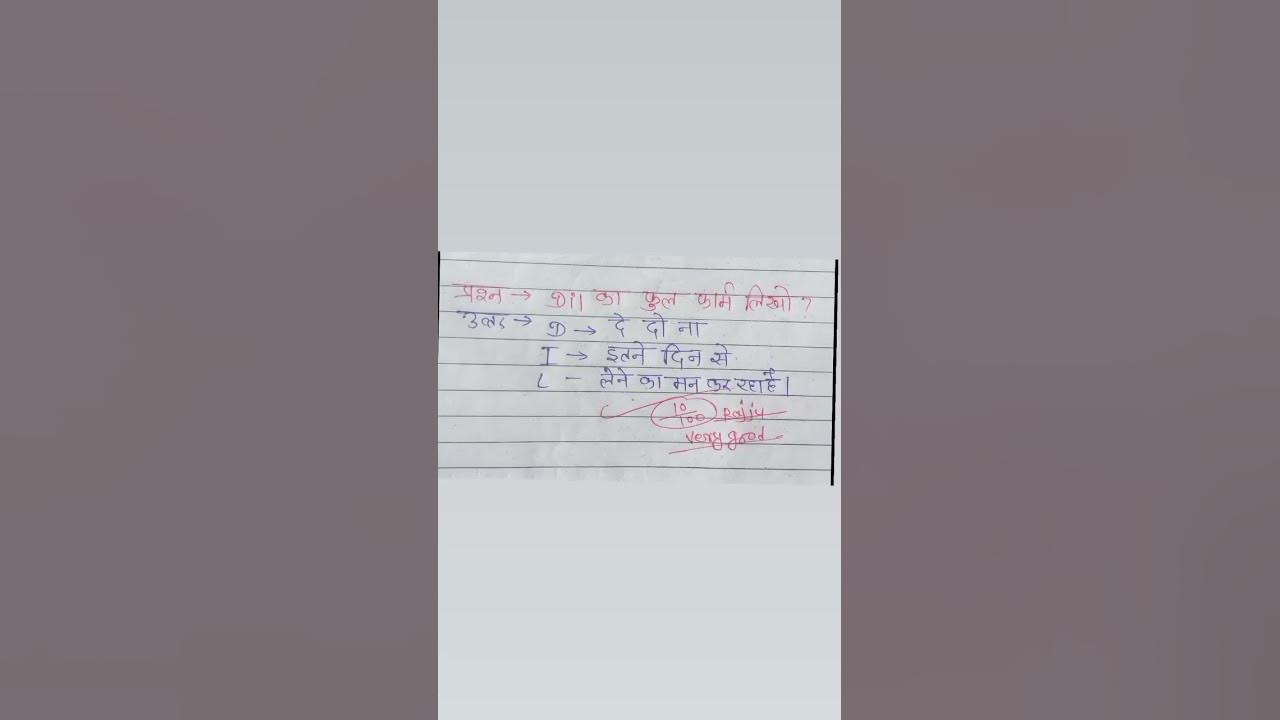 प्रश्न → Dil का फुल फार्म लिखो ?
उत्तर → D → दे दो ना
I → इतने दिन से
L - लेने का मन कर रहा है।
10/100 Rajju
very good